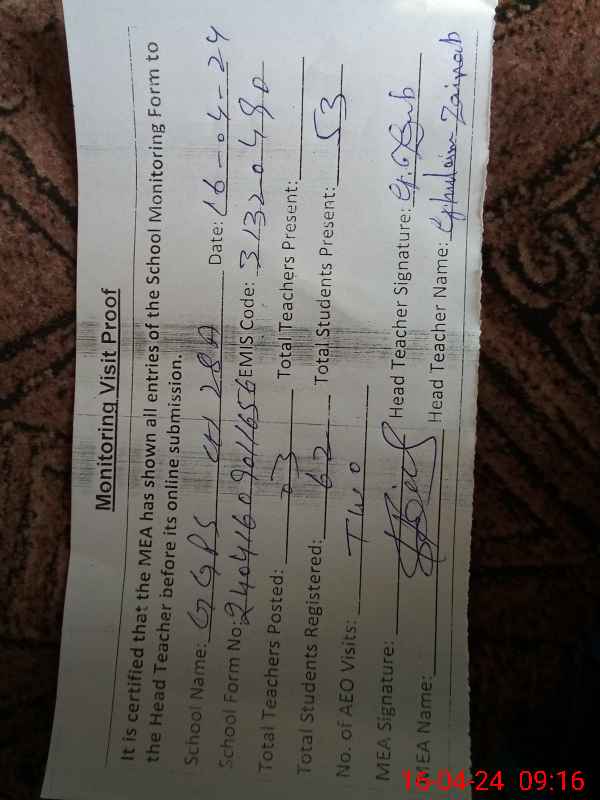 Monitoring Visit Proof
It is certified that the MEA has shown all entries of the School Monitoring Form to
the Head Teacher before its online submission.
School Name: GGPS Date: 16-04-24
School Form No: EMIS Code: 31320490
Total Teachers Posted: 03 Total Teachers Present:
Total Students Registered: 62 Total Students Present: 53
No. of AEO Visits: Two
MEA Signature: Head Teacher Signature:
MEA Name: Head Teacher Name: Ghulam Zainab
16-04-24 09:16